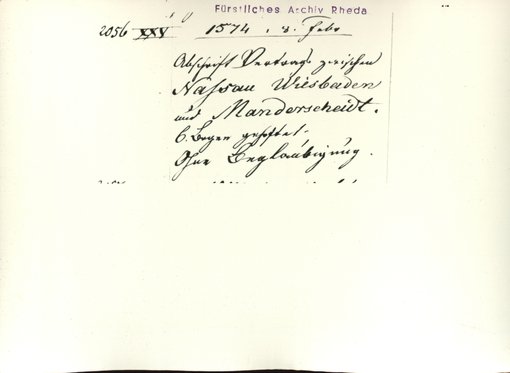 Fürstliches Archiv Rheda
2056 XXV 1574, 8. Febr
Abschrift Vertrags zwischen
Nassau Wiesbaden
und Manderscheidt.
6 Bogen geheftet.
Ohne Beglaubigung.